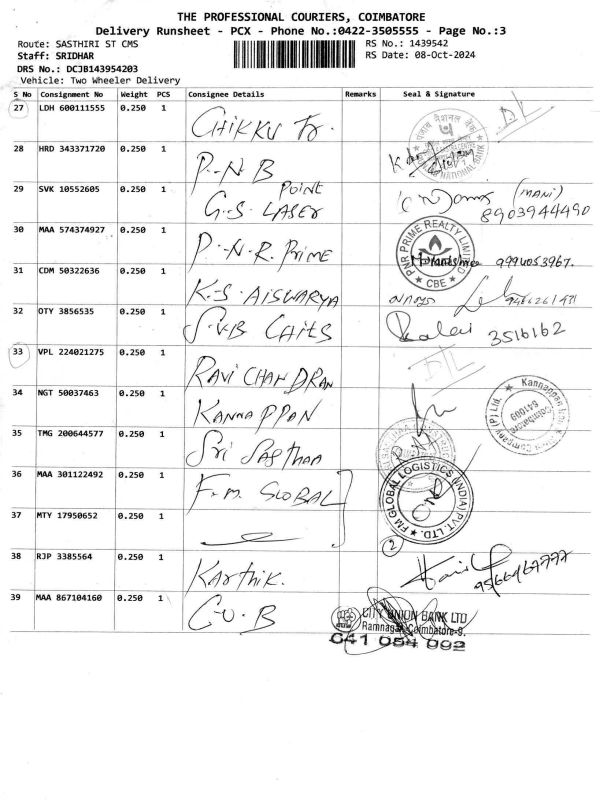 THE PROFESSIONAL COURIERS, COIMBATORE
Delivery Runsheet - PCX - Phone No.:0422-3505555 - Page No.:3
Route: SASTHIRI ST CMS
RS No.: 1439542
Staff: SRIDHAR
RS Date: 08-Oct-2024
DRS No.: DCJB143954203
Vehicle: Two Wheeler Delivery
S No Consignment No Weight PCS Consignee Details Remarks Seal & Signature
27 LDH 600111555 0.250 1 CHIKKU Tr. DL
28 HRD 343371720 0.250 1 P-N-B
29 SVK 10552605 0.250 1 G.S. LASER POINT (MANI)
8903944490
30 MAA 574374927 0.250 1 P.N.R. PRIME PNR PRIME REALTY LIMITED CBE 9994053967.
31 CDM 50322636 0.250 1 K.S. AISWARYA
32 OTY 3856535 0.250 1 S.V.B CHITS Kalai 3516162
33 VPL 224021275 0.250 1 RAVI CHANDRAN DL
34 NGT 50037463 0.250 1 KANNAPPAN
35 TMG 200644577 0.250 1 Sri Sasthaa
36 MAA 301122492 0.250 1 F.M. GLOBAL FM GLOBAL LOGISTICS (INDIA) PVT. LTD.
37 MTY 17950652 0.250 1 2
38 RJP 3385564 0.250 1 Karthik.
39 MAA 867104160 0.250 1 C-U.B
CITY UNION BANK LTD
Ramnagar, Coimbatore-9.
641 054 002